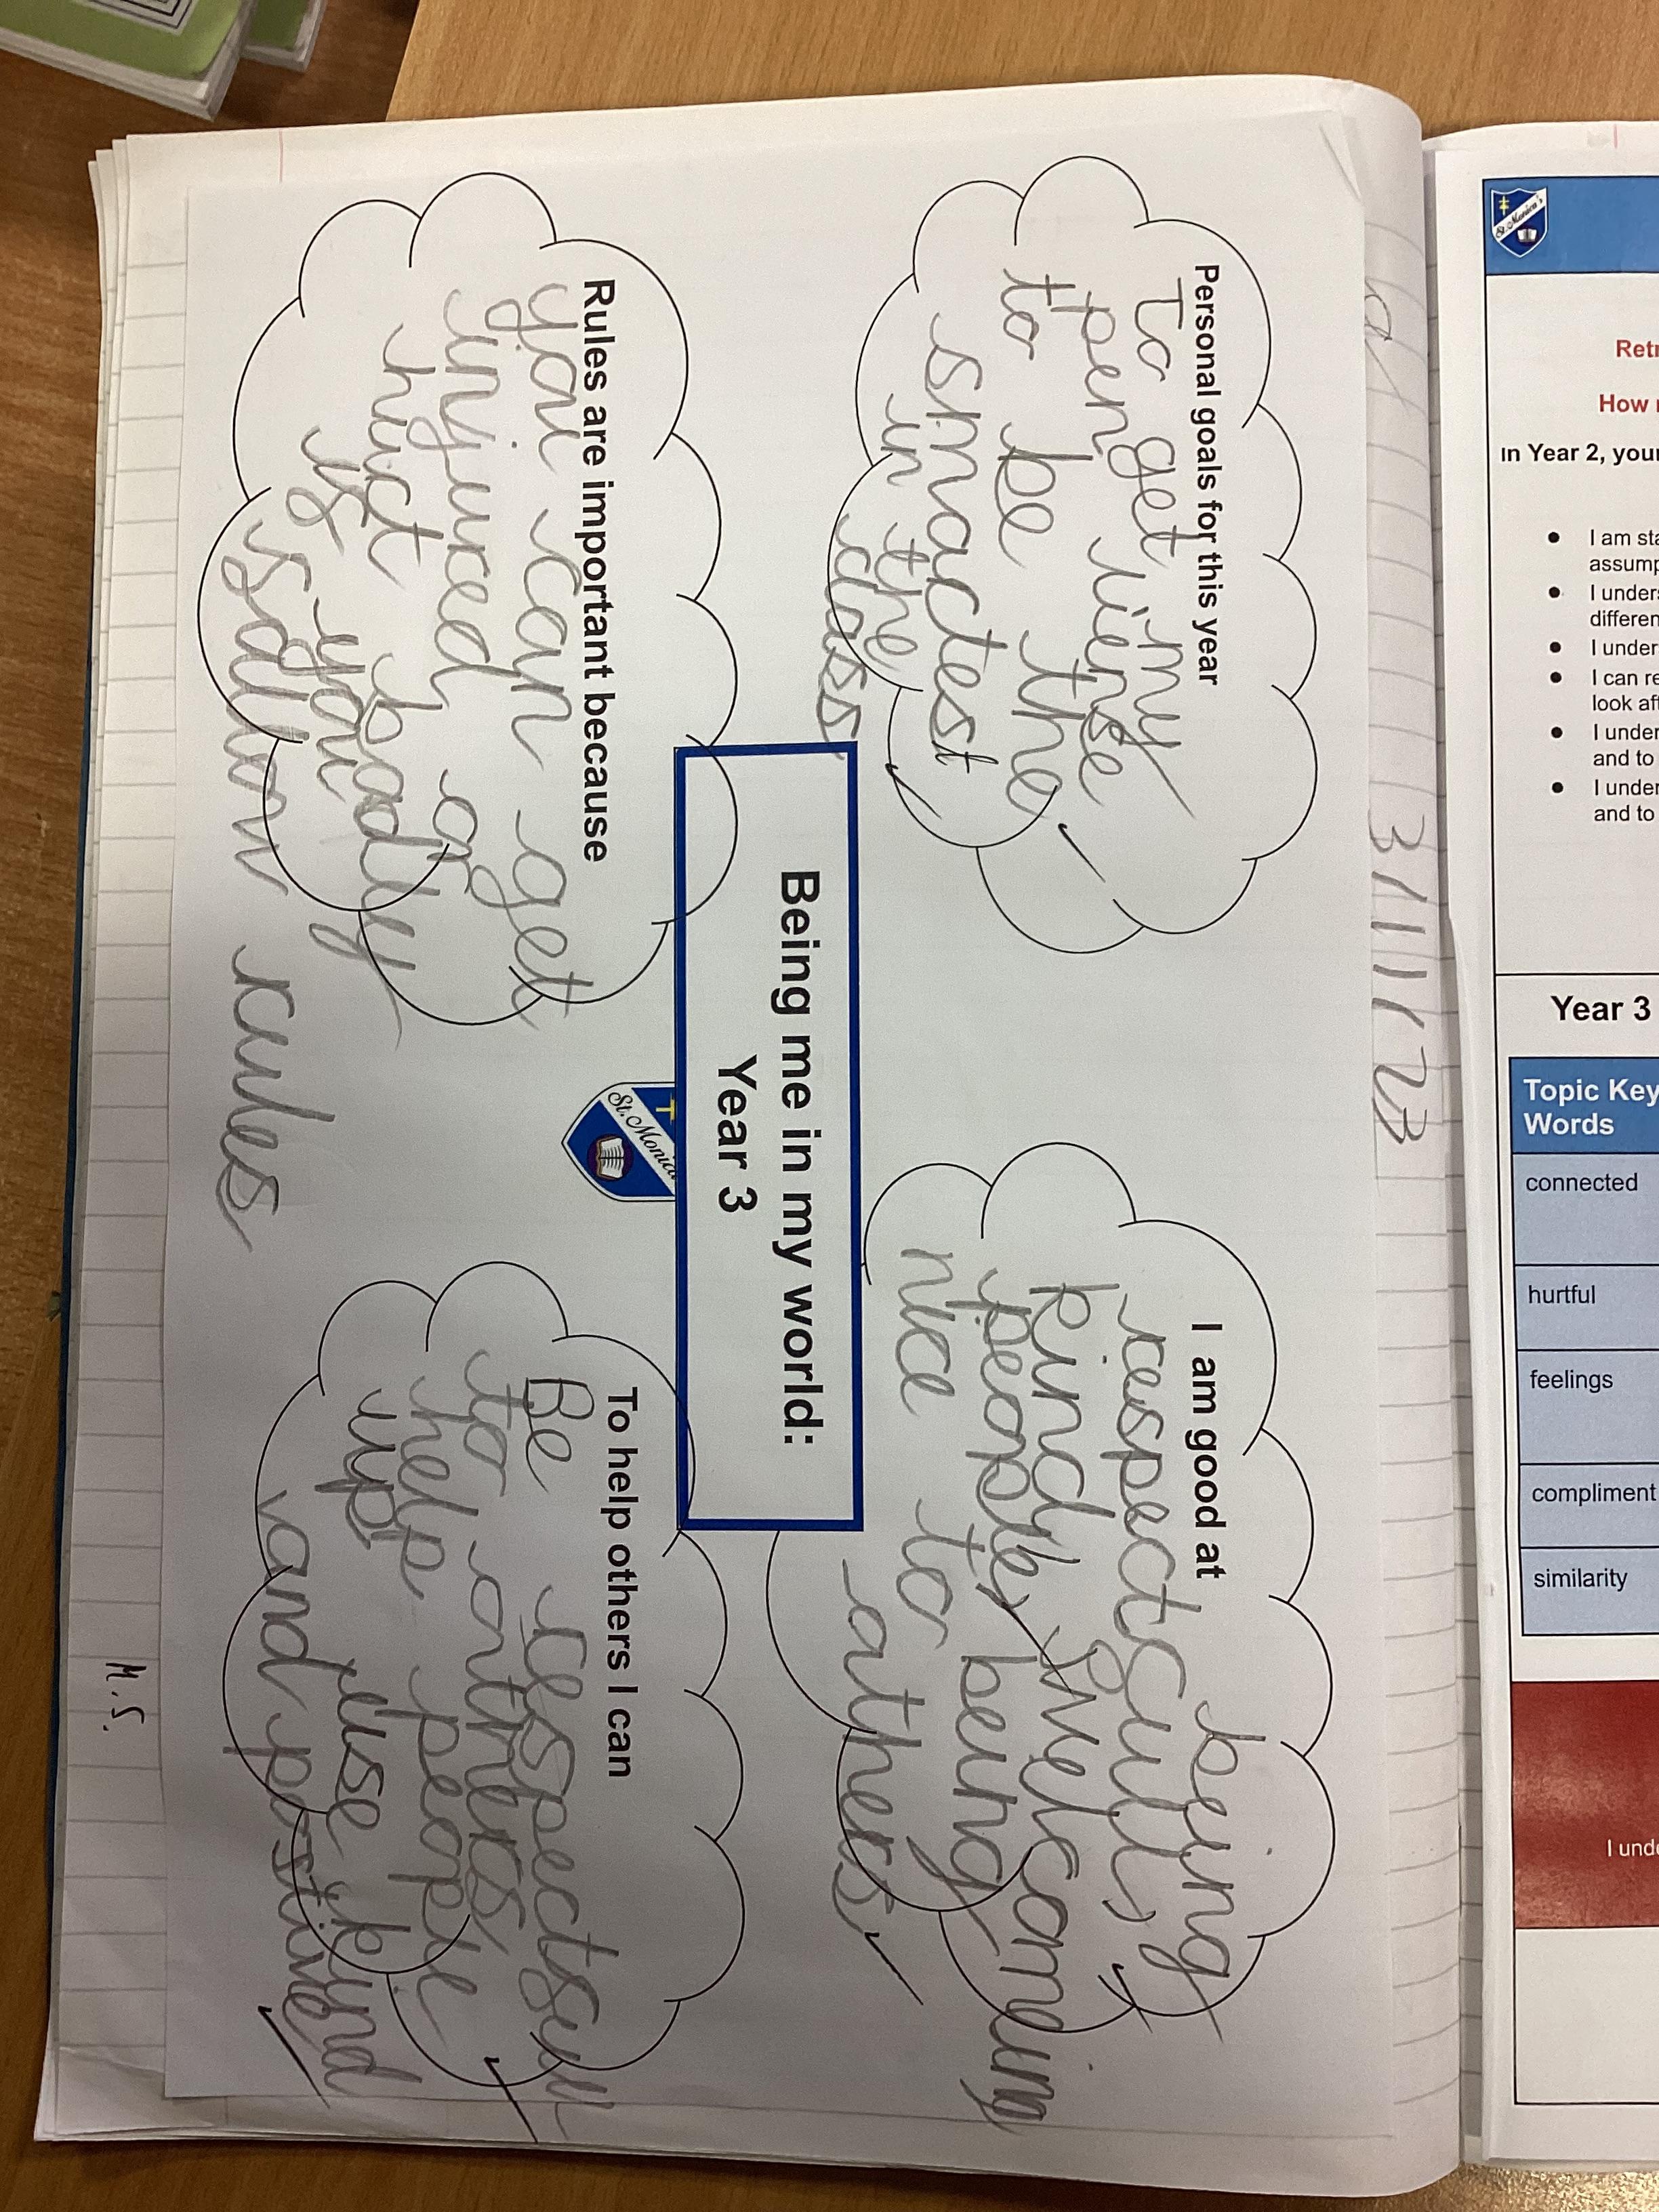 3/11/23
Personal goals for this year
To get my
pen liense
to be the
smartest
in the
class
I am good at
being
respectgull,
kind, welcomeing
people being
nice to
athers
Being me in my world:
Year 3
St. Monica
Rules are important because
you can get
injured or
hurt badly
if you
sollow rules
To help others I can
Be respectsul
to others
help people
up use kind
and positive
M.S.
St. Monica's
Retr
How
In Year 2, your
I am sta
assump
I unders
differen
I under
I can re
look aft
I under
and to
I under
and to
Year 3
Topic Key
Words
connected
hurtful
feelings
compliment
similarity
I unde